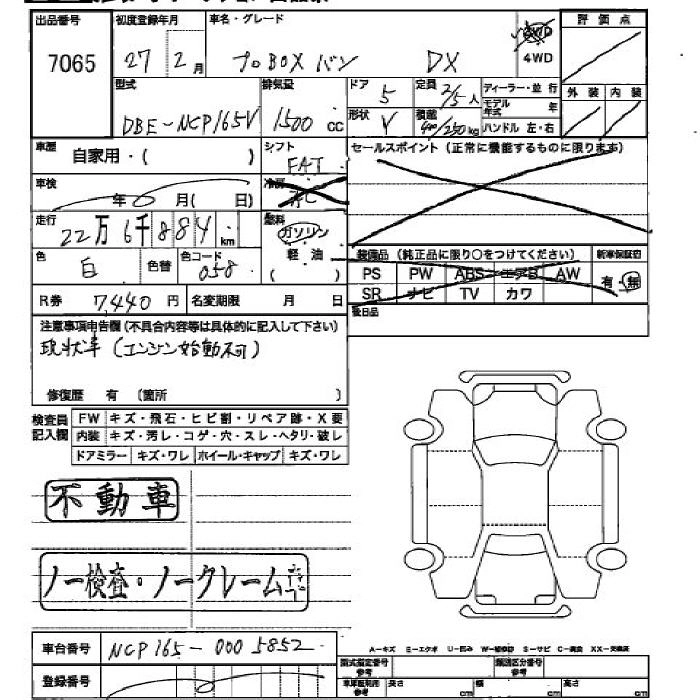 出品番号 初度登録年月 車名・グレード 評価点
7065 27年2月 プロBOX バン DX 2WD 4WD
型式 排気量 ドア 定員 ディーラー・並行 外装 内装
DBE-NCP165V 1500cc 5 2/5人 モデル年式 年
形状 V 積載 400/250kg ハンドル 左・右
車歴 自家用・( ) シフト FAT セールスポイント(正常に機能するものに限ります)
車検 年 月( 日) 冷房
走行 22万6千884km 燃料 ガソリン
軽油
( )
色 白 色替 色コード 058
装備品(純正品に限り○をつけてください) 新車保証書
PS PW ABS エアB AW 有・無
SR ナビ TV カワ
R券 7,440円 名変期限 月 日
後日品
注意事項申告欄(不具合内容等は具体的に記入して下さい)
現状車(エンジン始動不可)
修復歴 有(箇所 )
検査員記入欄 FW キズ・飛石・ヒビ割・リペア跡・X要
内装 キズ・汚レ・コゲ・穴・スレ・ヘタリ・破レ
ドアミラー キズ・ワレ ホイール・キャップ キズ・ワレ
不動車
ノー検査・ノークレーム
車台番号 NCP165-0005852
A-キズ E-エクボ U-凹み W-補修跡 S-サビ C-腐食 XX-交換済
型式指定番号 参考 類別区分番号 参考
登録番号
車庫証明用 参考 長さ cm 幅 cm 高さ cm